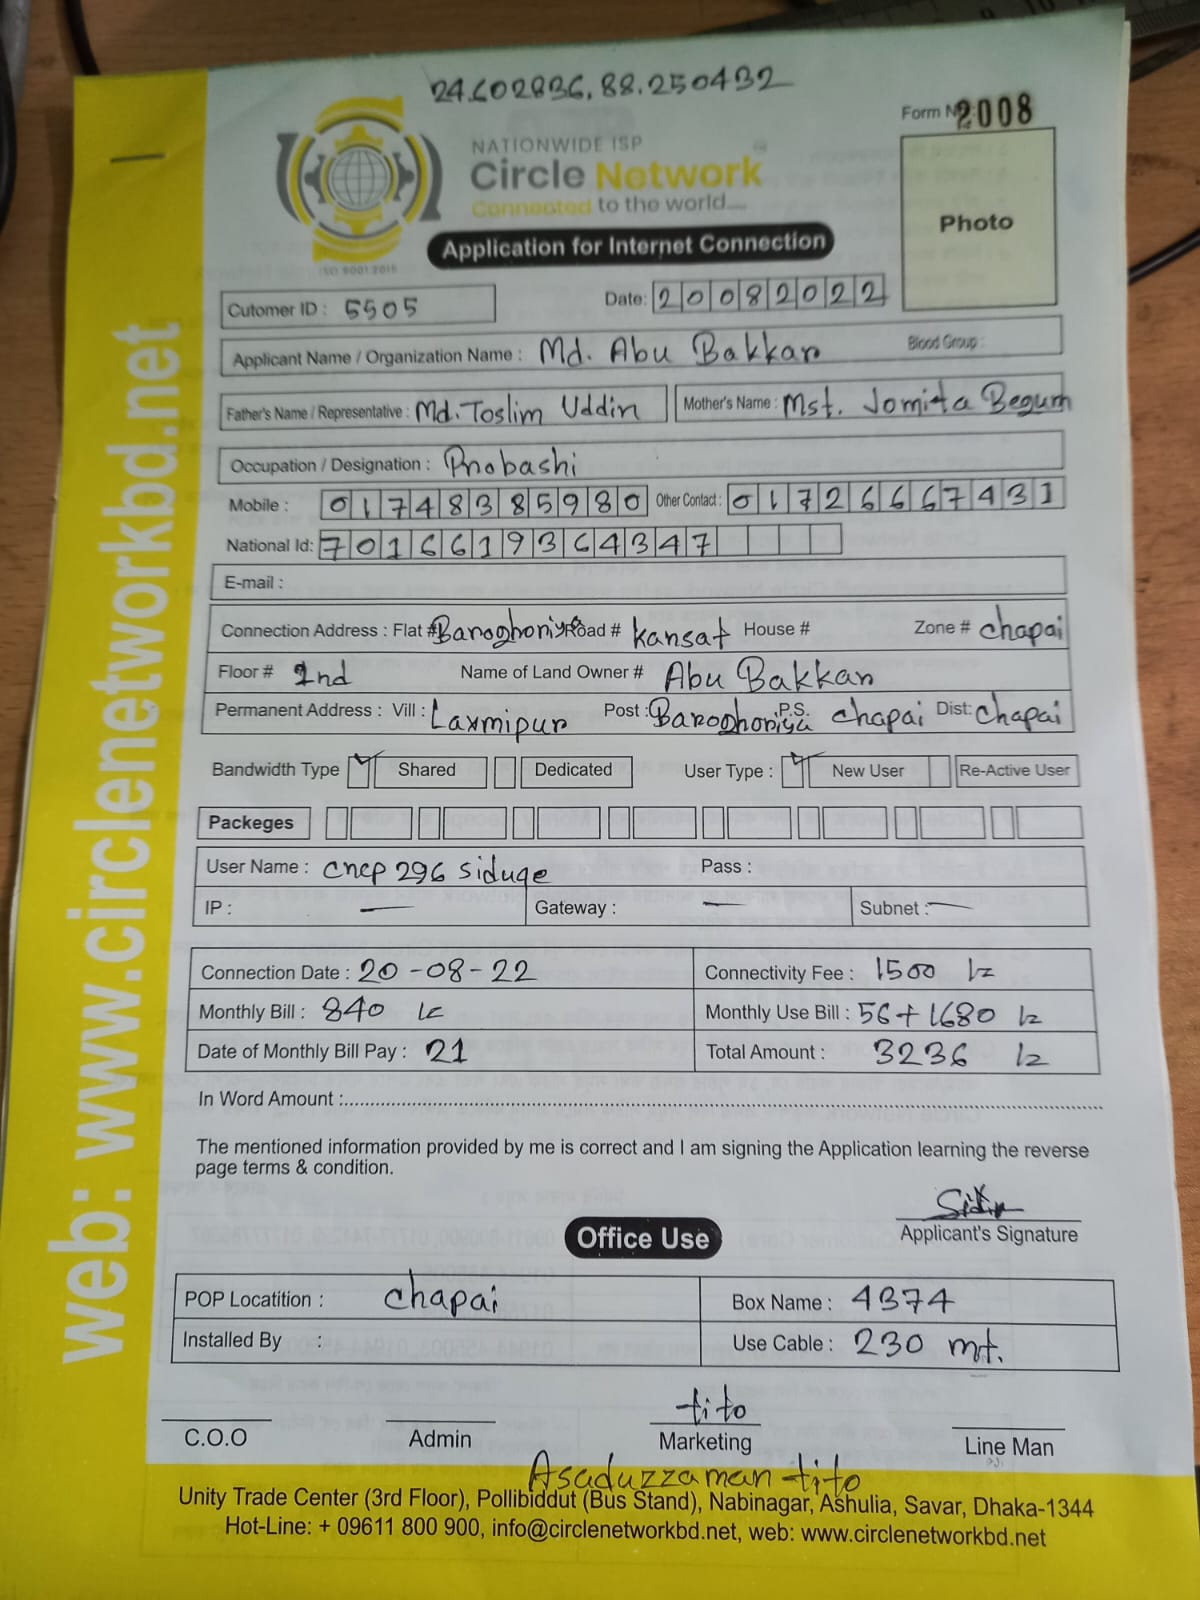 24.602836, 88.250432
Form No 2008
NATIONWIDE ISP
Circle Network
Connected to the world
Photo
Application for Internet Connection
ISO 9001:2015
Cutomer ID : 5505 Date: 20082022
Applicant Name / Organization Name : Md. Abu Bakkar Blood Group :
Father's Name / Representative : Md. Toslim Uddin Mother's Name : Mst. Jomita Begum
Occupation / Designation : Probashi
Mobile : 01748385980 Other Contact : 01726667431
National Id: 7016619364347
E-mail :
Connection Address : Flat # Baroghoriya Road # Kansat House # Zone # Chapai
Floor # 2nd Name of Land Owner # Abu Bakkar
Permanent Address : Vill : Laxmipur Post : Baroghoriya P.S. Chapai Dist: Chapai
Bandwidth Type Shared Dedicated User Type : New User Re-Active User
Packeges
User Name : cncp 296 siduge Pass :
IP : — Gateway : — Subnet : —
Connection Date : 20-08-22 Connectivity Fee : 1500
Monthly Bill : 840 Monthly Use Bill : 56+1680
Date of Monthly Bill Pay : 21 Total Amount : 3236
In Word Amount :
The mentioned information provided by me is correct and I am signing the Application learning the reverse
page terms & condition.
Applicant's Signature
Office Use
POP Locatition : Chapai Box Name : 4374
Installed By : Use Cable : 230 mt.
tito
C.O.O Admin Marketing Line Man
Asaduzzaman tito
Unity Trade Center (3rd Floor), Pollibiddut (Bus Stand), Nabinagar, Ashulia, Savar, Dhaka-1344
Hot-Line: + 09611 800 900, info@circlenetworkbd.net, web: www.circlenetworkbd.net
web: www.circlenetworkbd.net